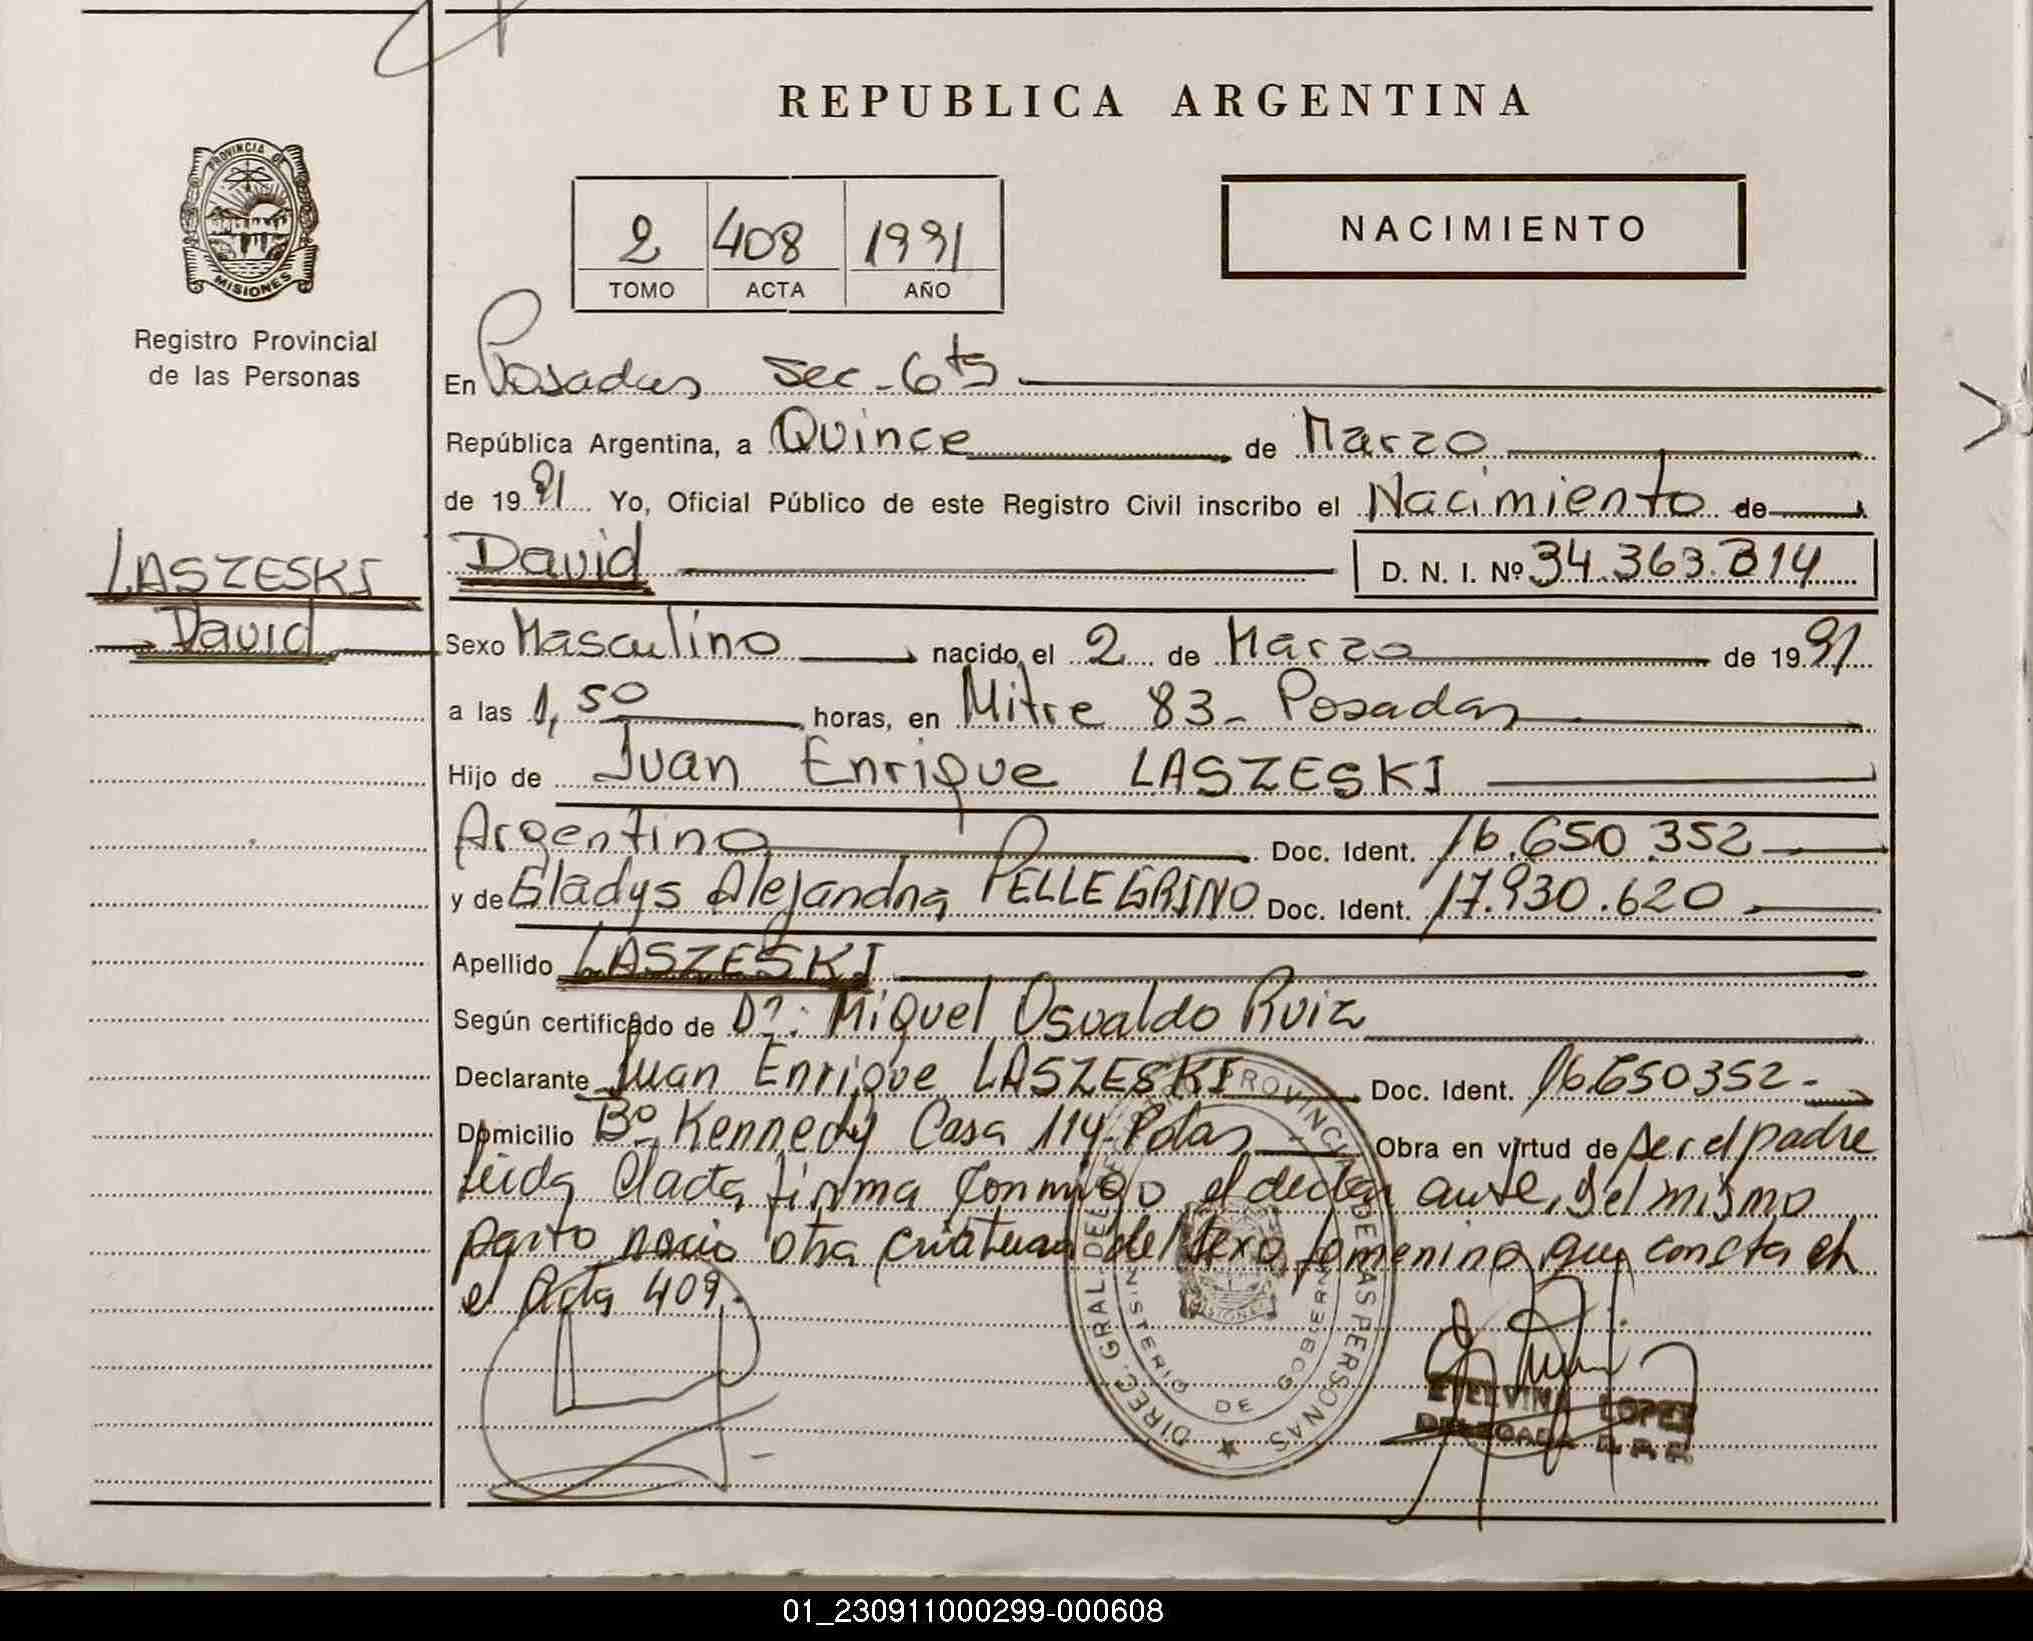 REPUBLICA ARGENTINA
PROVINCIA DE
MISIONES
Registro Provincial
de las Personas
2 408 1991
TOMO ACTA AÑO
NACIMIENTO
En Posadas Sec. 6ta
República Argentina, a Quince de Marzo
de 1991 Yo, Oficial Público de este Registro Civil inscribo el Nacimiento de
LASZESKI
David
David D. N. I. Nº 34.363.314
Sexo Masculino nacido el 2 de Marzo de 1991
a las 1,50 horas, en Mitre 83 - Posadas
Hijo de Juan Enrique LASZESKI
Argentino Doc. Ident. 16.650.352
y de Gladys Alejandra PELLEGRINO Doc. Ident. 17.930.620
Apellido LASZESKI
Según certificado de Dr. Miguel Osvaldo Ruiz
Declarante Juan Enrique LASZESKI Doc. Ident. 16.650352-
Domicilio Bº Kennedy Casa 114- Pdas Obra en virtud de ser el padre
leida el acta, firma conmigo el declarante, del mismo
parto nació otra criatura del sexo femenino que consta en
el Acta 409.
DIREC. GRAL. DEL PROVINCIAL DE LAS PERSONAS
MINISTERIO DE GOBIERNO
ETELVINA LOPEZ
DELEGADA R. P. P.
01_230911000299-000608